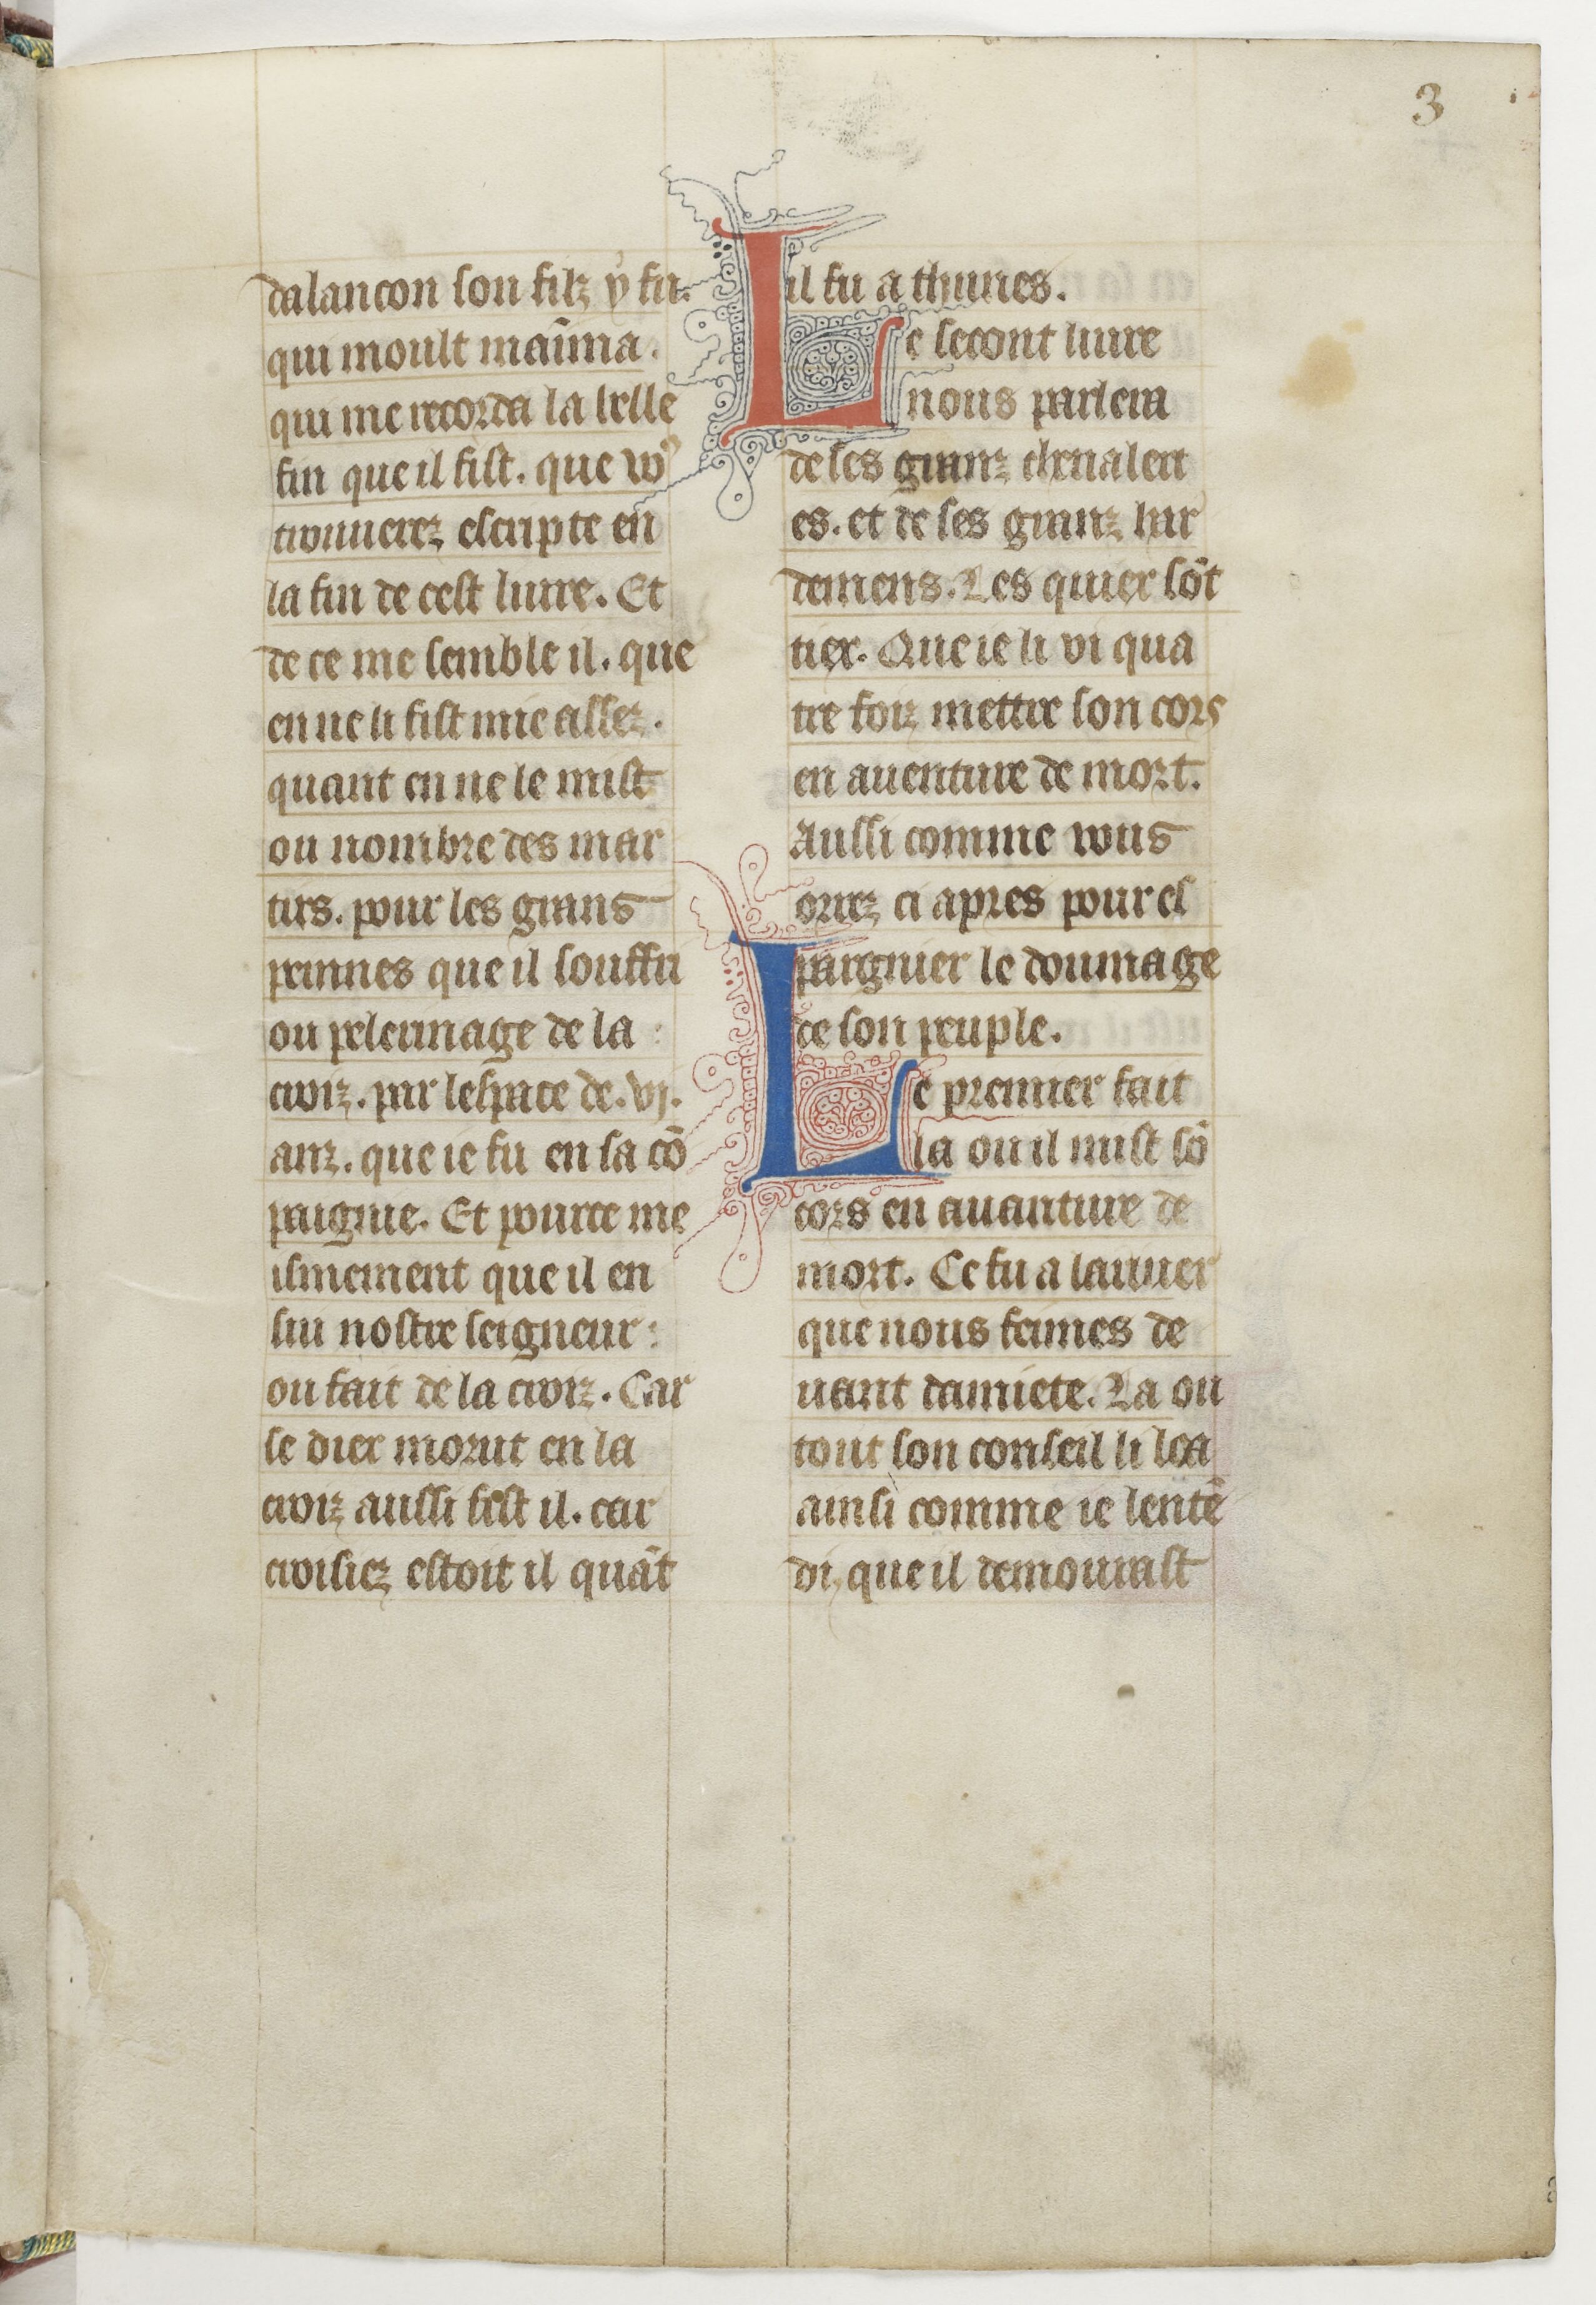 3
dalancon son filz y fu.
qui moult mãima.
qui me recorda la belle
fin que il fist. que vo9
trouuerez escripte en
la fin de cest liure. Et
de ce me semble il. que
en ne li fist mie assez.
quant en ne le mist
ou nombre des mar
tirs. pour les grans
peinnes que il souffri
ou pelerinage de la
croiz. par lespace de. vj.
anz. que ie fu en sa cõ
paignie. Et pource me
ismement que il en
sui nostre seigneur:
ou fait de la croiz. Car
se diex morut en la
croiz aussi fist il. car
croisiez estoit il quãt
il fu a thunes.
Le secont liure
nous parlera
de ses granz cheualeri
es. et de ses granz har
demens. Les quiex sõt
tiex. Que ie li vi qua
tre foiz mettre son cors
en auenture de mort.
Aussi comme vous
orrez ci apres pour es
pargnier le doumage
de son peuple.
Le premier fait
la ou il mist sõ
cors en auanture de
mort. Ce fu a lariuer
que nous feimes de
uant damiete. La ou
tout son conseil li loa
ainsi comme ie lentẽ
di, que il demourast